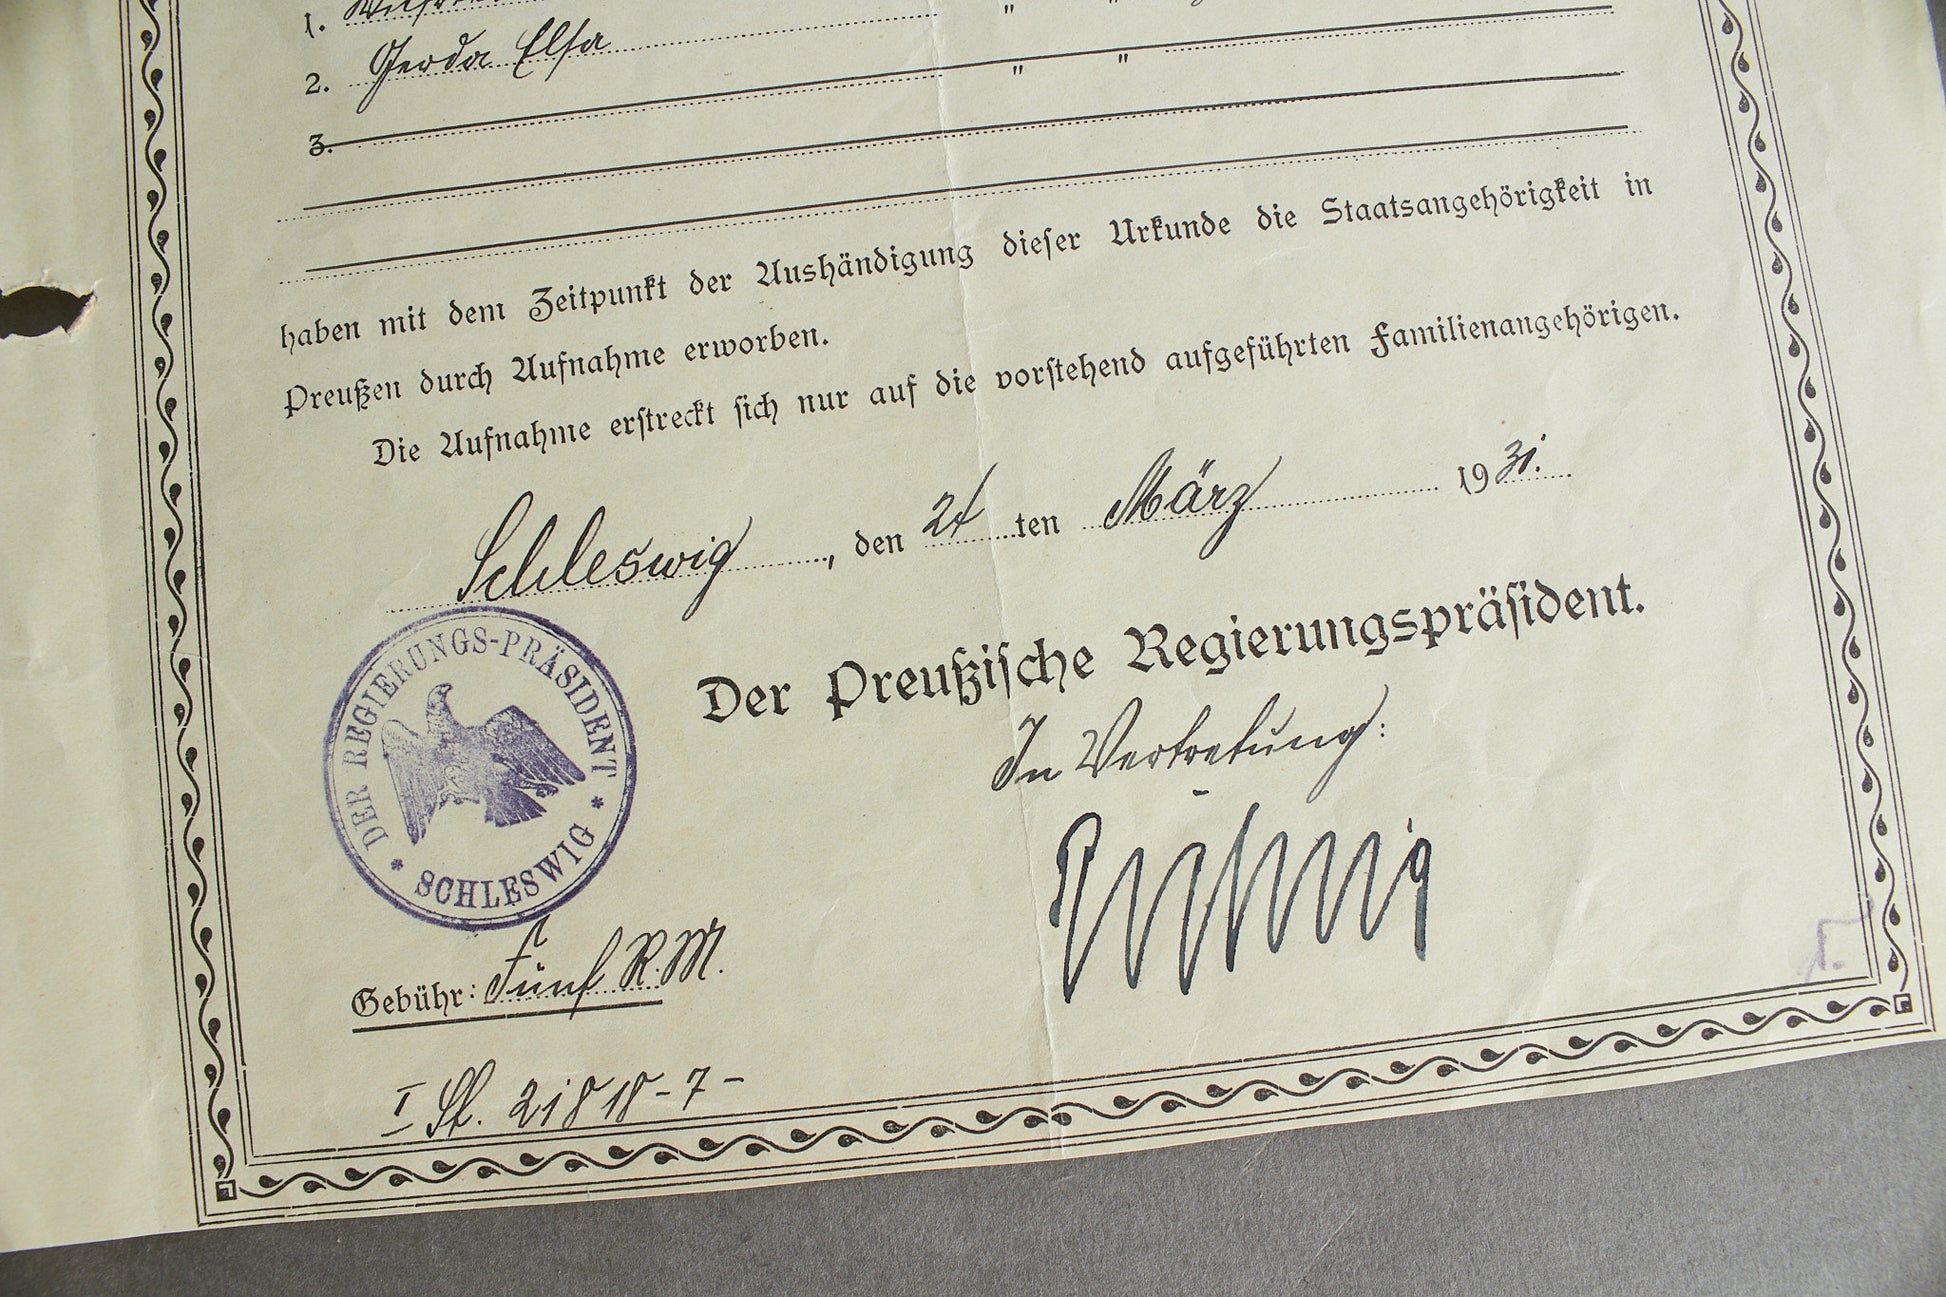 1. " "
2. Gerda Elsa " "
3.
haben mit dem Zeitpunkt der Aushändigung dieser Urkunde die Staatsangehörigkeit in
Preußen durch Aufnahme erworben.
Die Aufnahme erstreckt sich nur auf die vorstehend aufgeführten Familienangehörigen.
Schleswig, den 24ten März 1931.
DER REGIERUNGS-PRÄSIDENT
* SCHLESWIG *
Der Preußische Regierungspräsident.
In Vertretung:
Gebühr: Fünf R.M.
I St. 21818-7-